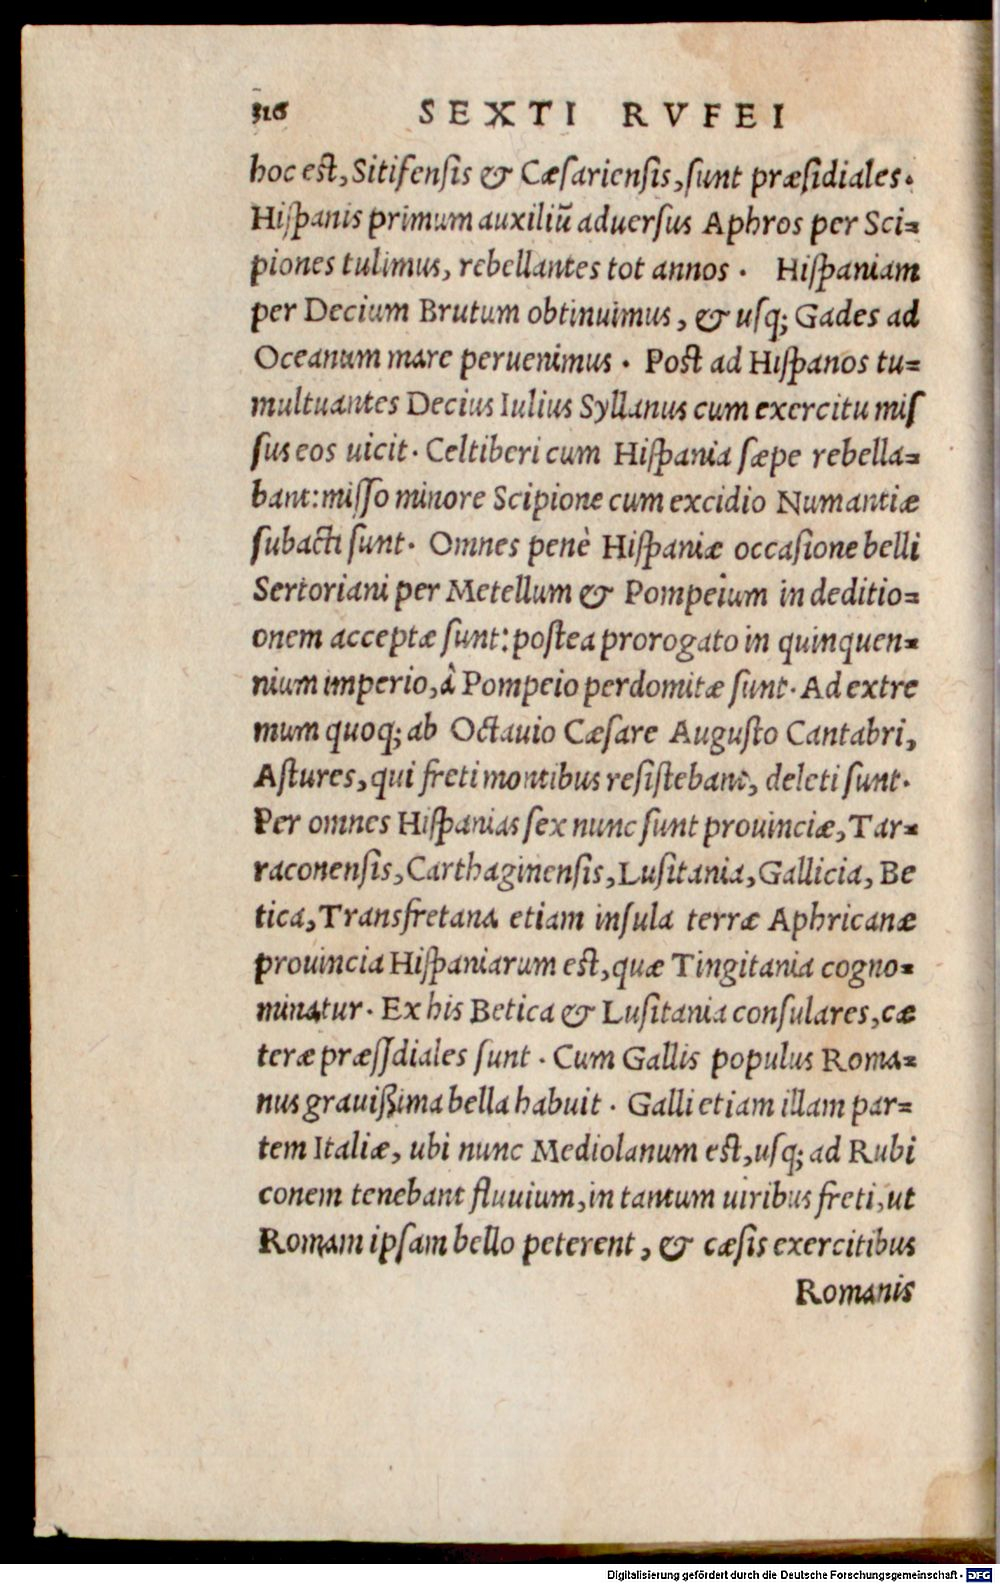 316 SEXTI RVFEI
hoc eſt, Sitifenſis & Cæſarienſis, ſunt præſidiales.
Hiſpanis primum auxiliū aduerſus Aphros per Sci=
piones tulimus, rebellantes tot annos. Hiſpaniam
per Decium Brutum obtinuimus, & uſq; Gades ad
Oceanum mare peruenimus. Poſt ad Hiſpanos tu=
multuantes Decius Iulius Syllanus cum exercitu miſ
ſus eos uicit. Celtiberi cum Hiſpania ſæpe rebella=
bant: miſſo minore Scipione cum excidio Numantiæ
ſubacti ſunt. Omnes penè Hiſpaniæ occaſione belli
Sertoriani per Metellum & Pompeium in deditio=
onem acceptæ ſunt: poſtea prorogato in quinquen=
nium imperio, à Pompeio perdomitæ ſunt. Ad extre
mum quoq; ab Octauio Cæſare Auguſto Cantabri,
Aſtures, qui freti montibus reſiſtebant, deleti ſunt.
Per omnes Hiſpanias ſex nunc ſunt prouinciæ, Tar=
raconenſis, Carthaginenſis, Luſitania, Gallicia, Be
tica, Transfretana etiam inſula terræ Aphricanæ
prouincia Hiſpaniarum eſt, quæ Tingitania cogno=
minatur. Ex his Betica & Luſitania conſulares, cæ
teræ præſſdiales ſunt. Cum Gallis populus Roma=
nus grauiſſima bella habuit. Galli etiam illam par=
tem Italiæ, ubi nunc Mediolanum eſt, uſq; ad Rubi
conem tenebant fluuium, in tantum uiribus freti, ut
Romam ipſam bello peterent, & cæſis exercitibus
Romanis
Digitalisierung gefördert durch die Deutsche Forschungsgemeinschaft - DFG